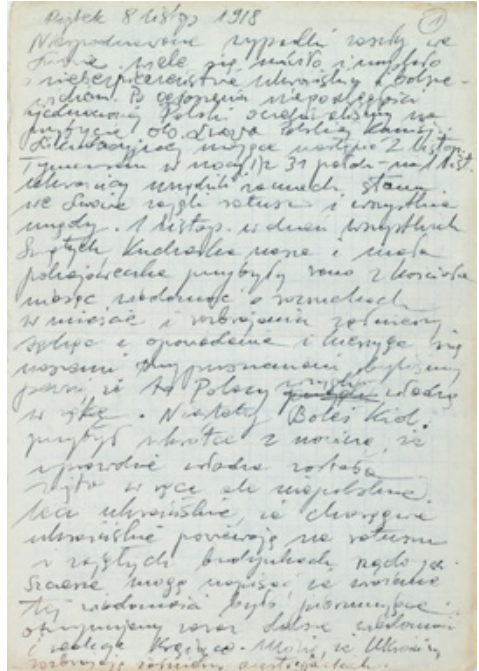 Piątek 8 listop 1918 ①
Niespodziewane wypadki zaszły we
Lwowie. Wiele się mówiło i
o niebezpieczeństwie ukraińskim i bolsze-
wickiem. Po ogłoszeniu niepodległości
zjednoczonej Polski
przyjęcie Polskiej Komisji
Likwidacyjnej mające nastąpić 2 listop.
Tymczasem w nocy z 31 paźdz. na 1 list.
Ukraińcy urządzili zamach stanu
we Lwowie zajęli ratusz i wszystkie
urzędy. 1 listop. w dzień Wszystkich
Świętych, Kucharka nasza i mała
pokojóweczka przybyły rano z kościoła
niosąc wiadomość o rozruchach
w mieście i rozbrojeniu żołnierzy
opowiadania i ciesząc się
naszemi przypuszczeniami byliśmy
pewni że to Polacy wzięli władzę
w rękę. Niestety Boleś Kiel.
przybył wkrótce z nowiną, że
wprawdzie władza została
zajęta w ręce ale niepolskie
lecz ukraińskie, że chorągwie
ukraińskie powiewają na ratuszu
i zajętych budynkach rządowych.
Szczerze mogę napisać że wrażenie
tej wiadomości było piorunujące.
otrzymujemy zaraz dalsze wiadomości
i Mówią, że Ukraińcy
rozbrajają żołnierzy austrjackich.